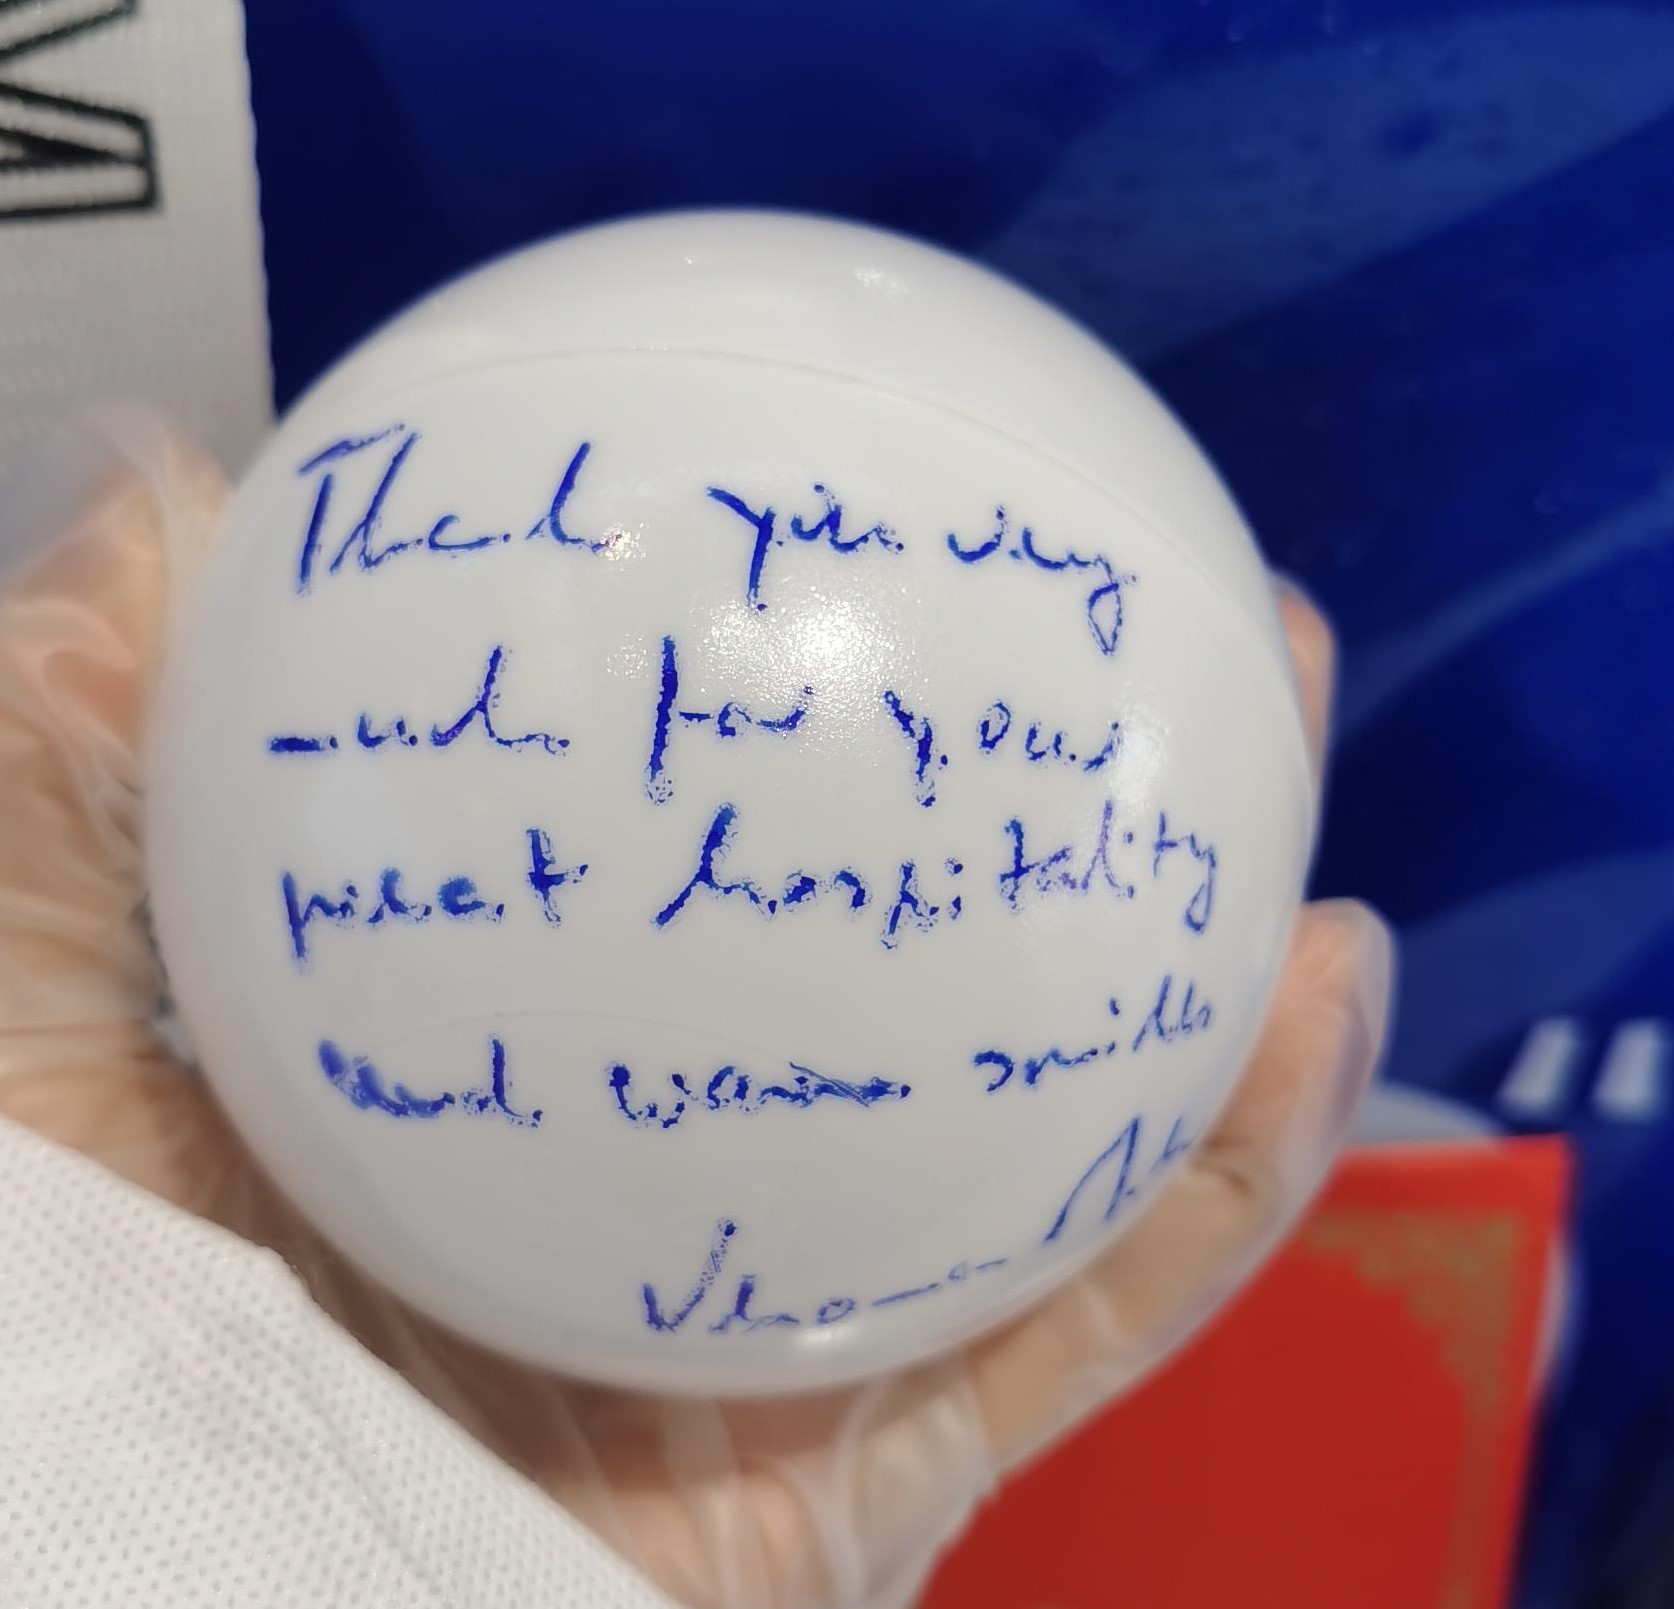 Thank you very
much for your
great hospitality
and warm smiles